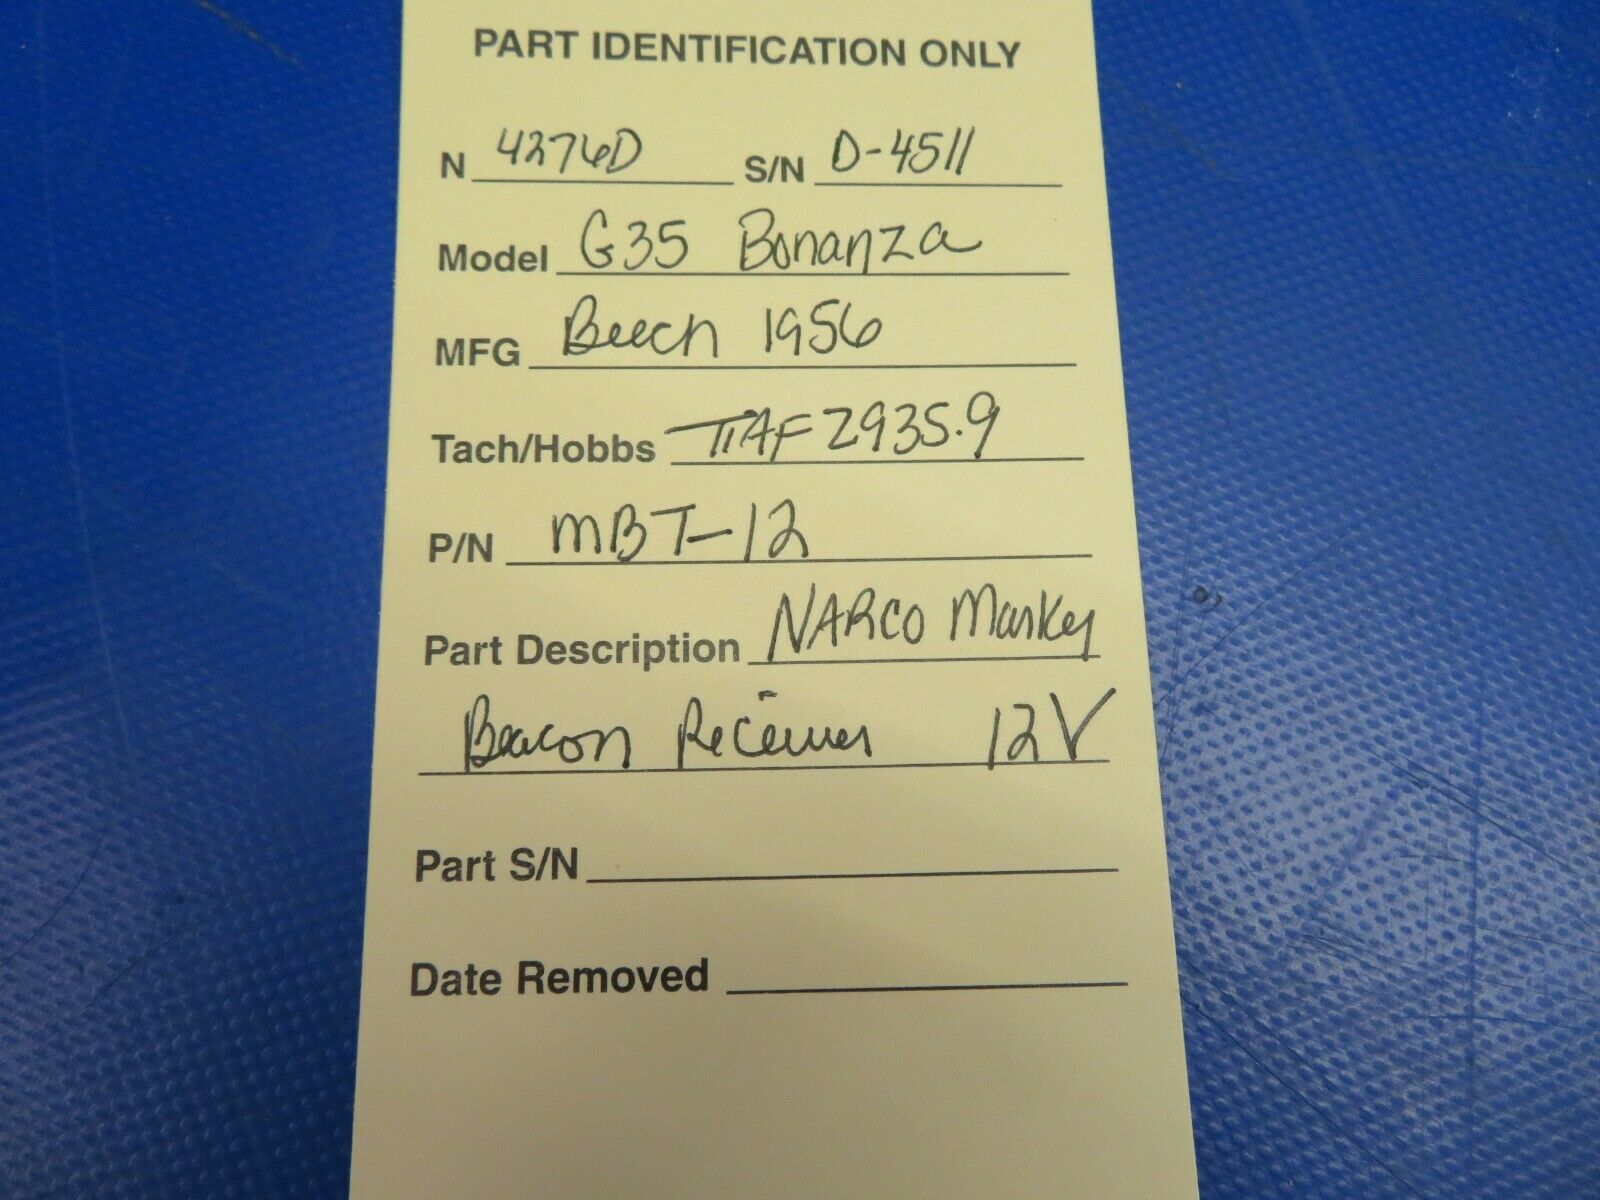 PART IDENTIFICATION ONLY
N 4276D S/N D-4511
Model G35 Bonanza
MFG Beech 1956
Tach/Hobbs TTAF 2935.9
P/N MBT-12
Part Description NARCO Marker
Beacon Receiver 12V
Part S/N
Date Removed